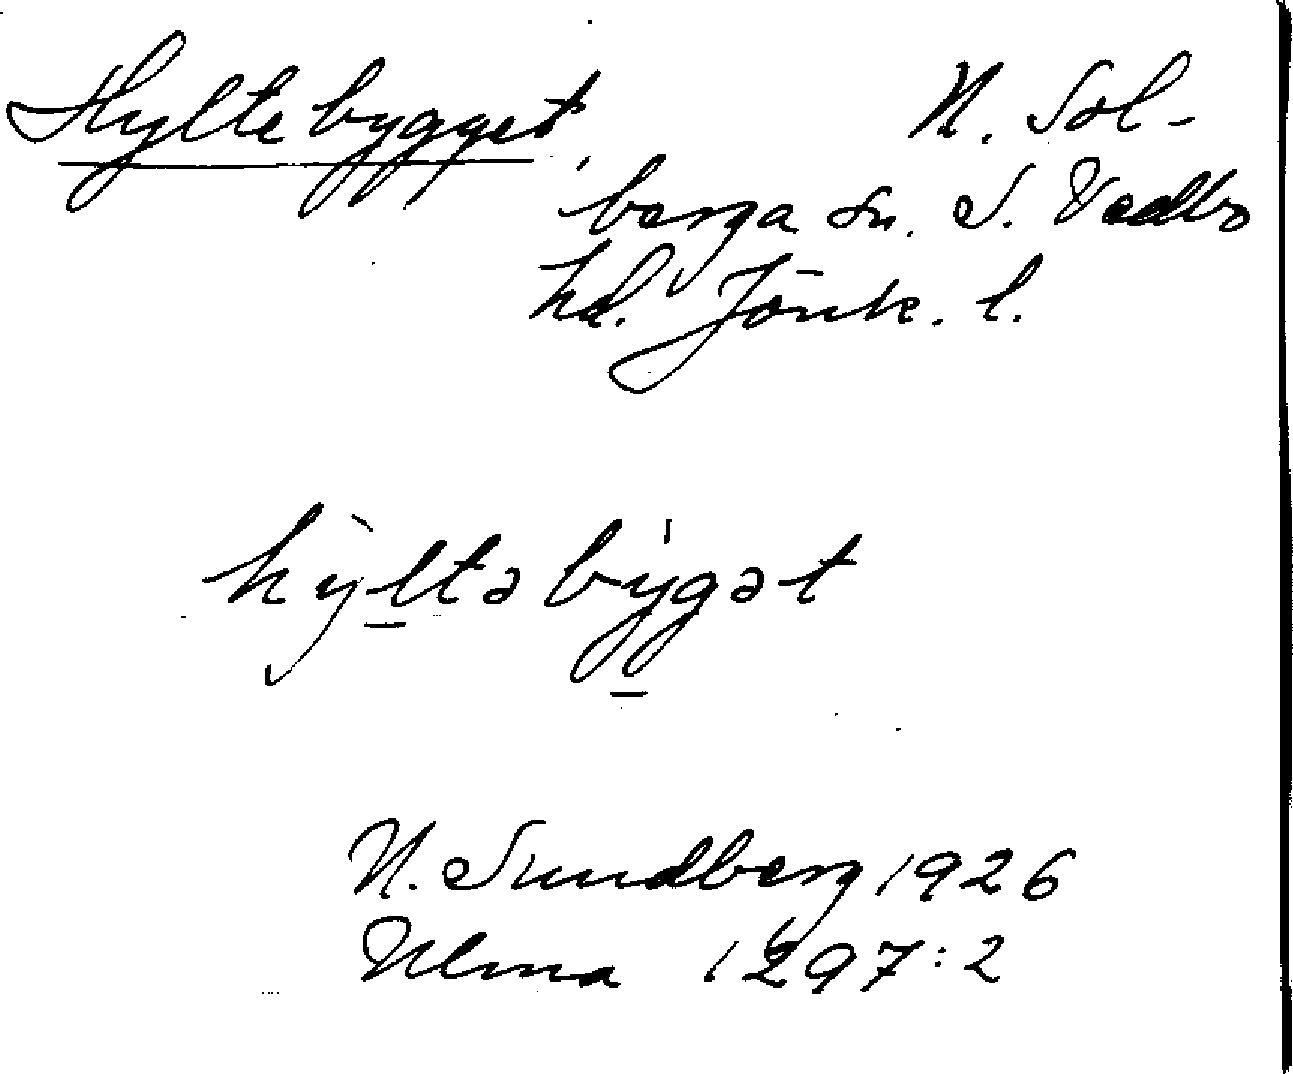 Hyltebygget, N. Sol-
berga sn. S. Vedbo
hd. Jönk. l.
hỳltəby̍gət
N. Sundberg 1926
Ulma 1297:2